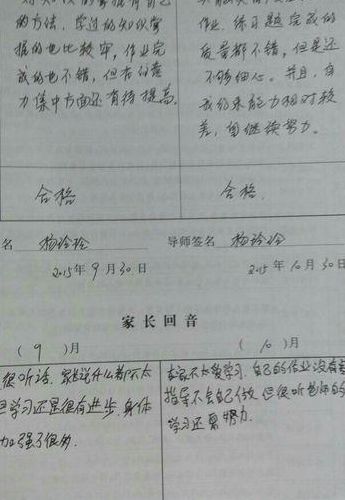 的方法，学过的知识掌
握的也比较牢，作业完
成的也不错，但在注意
力集中方面还有待提高。
作业、练习题完成的
质量都不错，但是还
不够细心。并且，自
我约束能力相对较
差，望继续努力。
合格
合格
名 杨玲玲
导师签名 杨玲玲
2015年9月30日
2015年10月30日
家长回音
（9）月
（10）月
很听话，家长说什么都不太
但学习还是很有进步，身体
加强了很多
在家不太爱学习，自己的作业没有
指导不会自己做，但很听老师的
学习还要努力